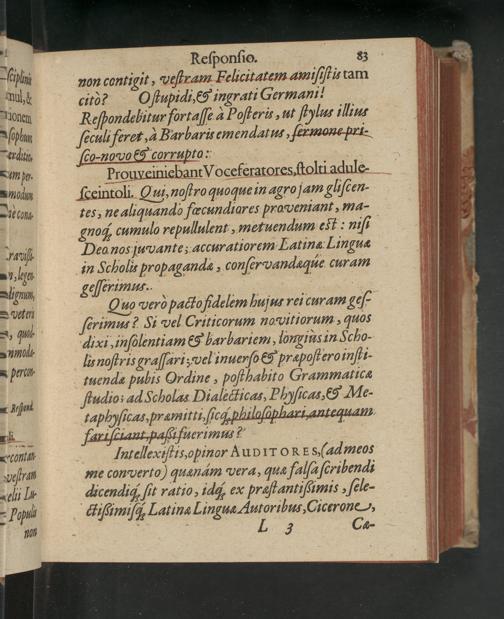 Responsio. 83
non contigit, vestram Felicitatem amisistis tam
citò? O stupidi, & ingrati Germani!
Respondebitur fortasse à Posteris, ut stylus illius
seculi feret, à Barbaris emendatus, sermone pri-
sco-novo & corrupto:
Prouveiniebant Voceferatores, stolti adule-
sceintoli. Qui, nostro quoque in agro jam gliscen-
tes, ne aliquando fœcundiores proveniant, ma-
gnoq́; cumulo repullulent, metuendum est: nisi
Deo nos juvante; accuratiorem Latinæ Linguæ
in Scholis propagandæ, conservandæq́ue curam
gesserimus.
Quo verò pacto fidelem hujus rei curam ges-
serimus? Si vel Criticorum novitiorum, quos
dixi, insolentiam & barbariem, longiùs in Scho-
lis nostris grassari; vel inverso & præpostero insti-
tuendæ pubis Ordine, posthabito Grammaticæ
studio; ad Scholas Dialecticas, Physicas, & Me-
taphysicas, præmitti, sicq́; philosophari, antequam
fari sciant, paßi fuerimus?
Intellexistis, opinor AUDITORES, (ad meos
me converto) quænám vera, quæ falsa scribendi
dicendiq́; sit ratio, idq́; ex præstantißimis, sele-
ctißimisq́; Latinæ Linguæ Autoribus, Cicerone,
L 3 Cæ-
sciplinis
mul, &
rionem
sophum
erditos,
am per-
modum
Gravissi-
n, legen-
dignum,
veteri
, quod-
mmoda-
percon-
Respond.
contan-
vestram
elii Lu-
Populo
non